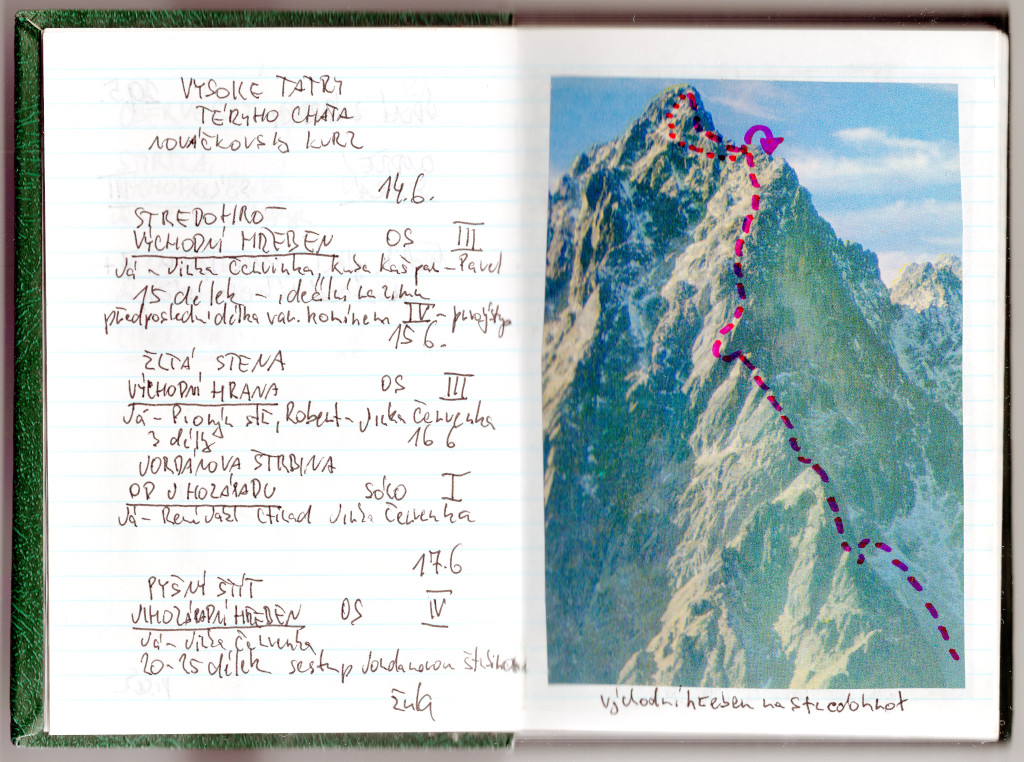 VYSOKE TATRY
TÉRYHO CHATA
NOVÁČKOVSKY KURZ
14.6.
STREDOHROT
VÝCHODNÍ HŘEBEN OS III
Já - Jirka Červinka, Kuba Kašpar - Pavel
15 délek - ideální na zimu
předposlední délka var. komínem IV -
15 6.
ŽLTÁ STENA
VÝCHODNÍ HRANA OS III
Já - Robert - Jirka Červenka
3 délky
16 6
JORDÁNOVA ŠTRBINA
OD JIHOZÁPADU SÓLO I
Já - Ctirad Jirka Červenka
17.6
PYŠNÝ ŠTÍT
JIHOZÁPADNÍ HŘEBEN OS IV
Já - Jirka Červenka
20-25 délek sestup Jordanovou
východní hřeben na Stredohrot